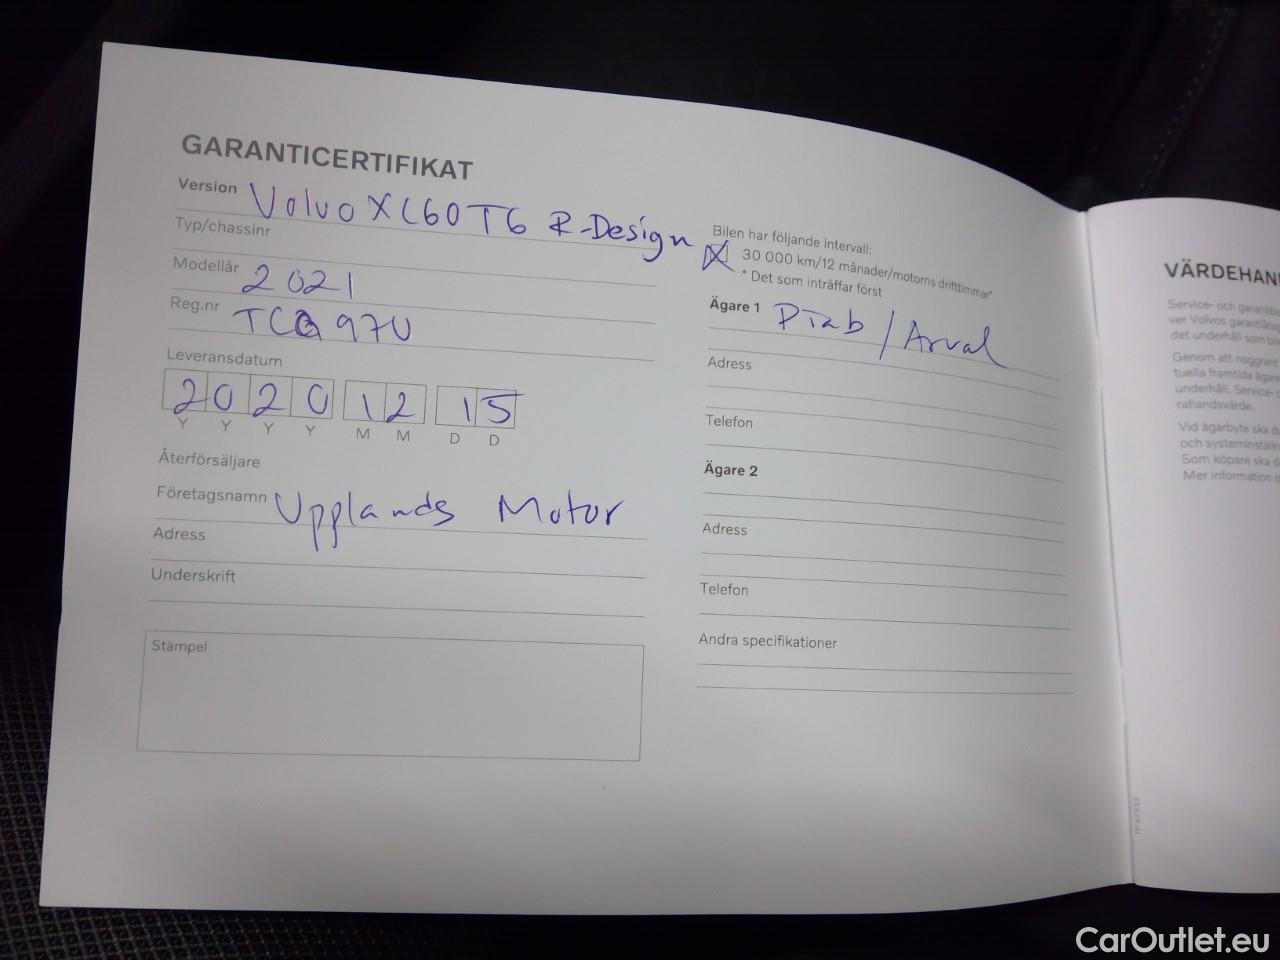 GARANTICERTIFIKAT
Version Volvo XC60 T6 R-Design
Typ/chassinr
Modellår 2021
Reg.nr
Leveransdatum
2020 12 15
Y Y Y Y M M D D
Återförsäljare
Företagsnamn Upplands Motor
Adress
Underskrift
Stämpel
Bilen har följande intervall:
X 30 000 km/12 månader/motorns drifttimmar*
* Det som inträffar först
Ägare 1 / Arval
Adress
Telefon
Ägare 2
Adress
Telefon
Andra specifikationer
VÄRDEHAN
Service- och garantibo
ver Volvos garantiåta
det underhåll som bile
Genom att noggrant
tuella framtida ägare
underhåll. Service-
rahandsvärde.
Vid ägarbyte ska d
och systeminställn
Som köpare ska d
Mer information
CarOutlet.eu